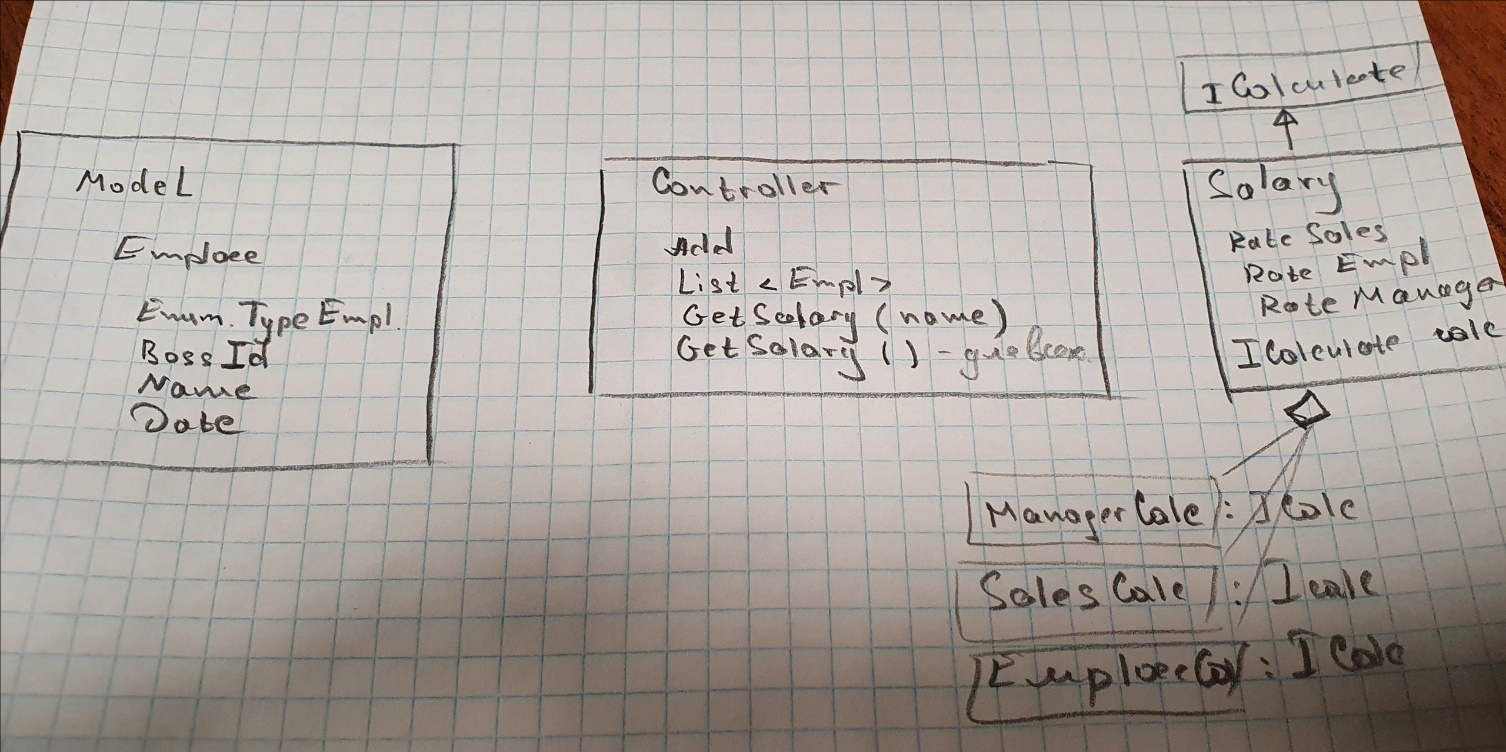 Model
Emploee
Enum. Type Empl.
Boss Id
Name
Date
Controller
Add
List < Empl >
Get Salary (name)
Get Salary () - для всех
I Calculate
Salary
Rate Sales
Rate Empl
Rate Manager
I Calculate calc
Manager Calc : I Calc
Sales Calc : I calc
Emploee Cal : I Calc